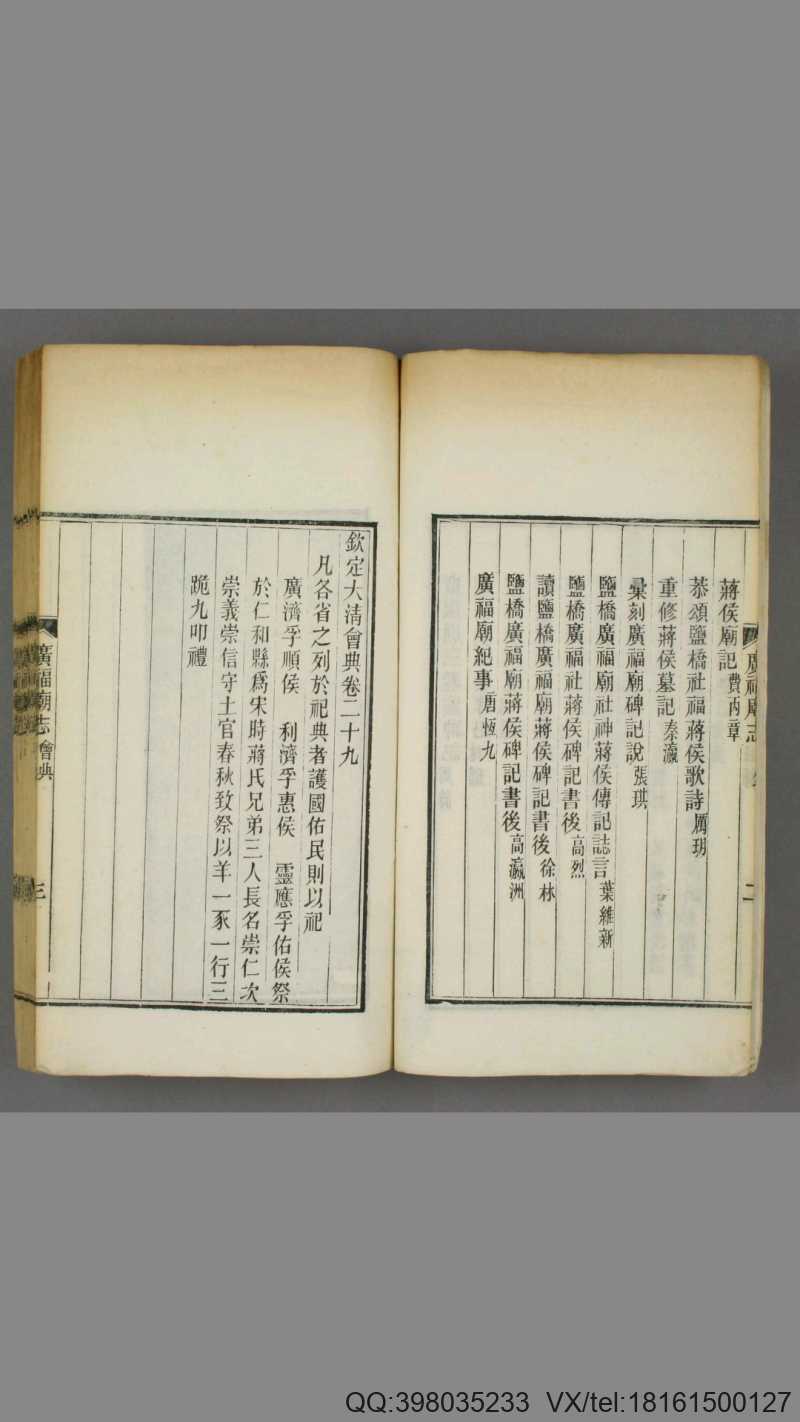 蔣侯廟記費丙章
恭頌鹽橋社福蔣侯歌詩厲玥
重修蔣侯墓記秦瀛
彙刻廣福廟碑記說張琪
鹽橋廣福廟社神蔣侯傳記誌言葉維新
鹽橋廣福社蔣侯碑記書後高烈
讀鹽橋廣福廟蔣侯碑記書後徐林
鹽橋廣福廟蔣侯碑記書後高瀛洲
廣福廟紀事唐恆九
廣福廟志
二
欽定大清會典卷二十九
凡各省之列於祀典者護國佑民則以祀
廣濟孚順侯 利濟孚惠侯 靈應孚佑侯祭
於仁和縣爲宋時蔣氏兄弟三人長名崇仁次
崇義崇信守土官春秋致祭以羊一豕一行三
跪九叩禮
廣福廟志 會典
三
QQ:398035233 VX/tel:18161500127